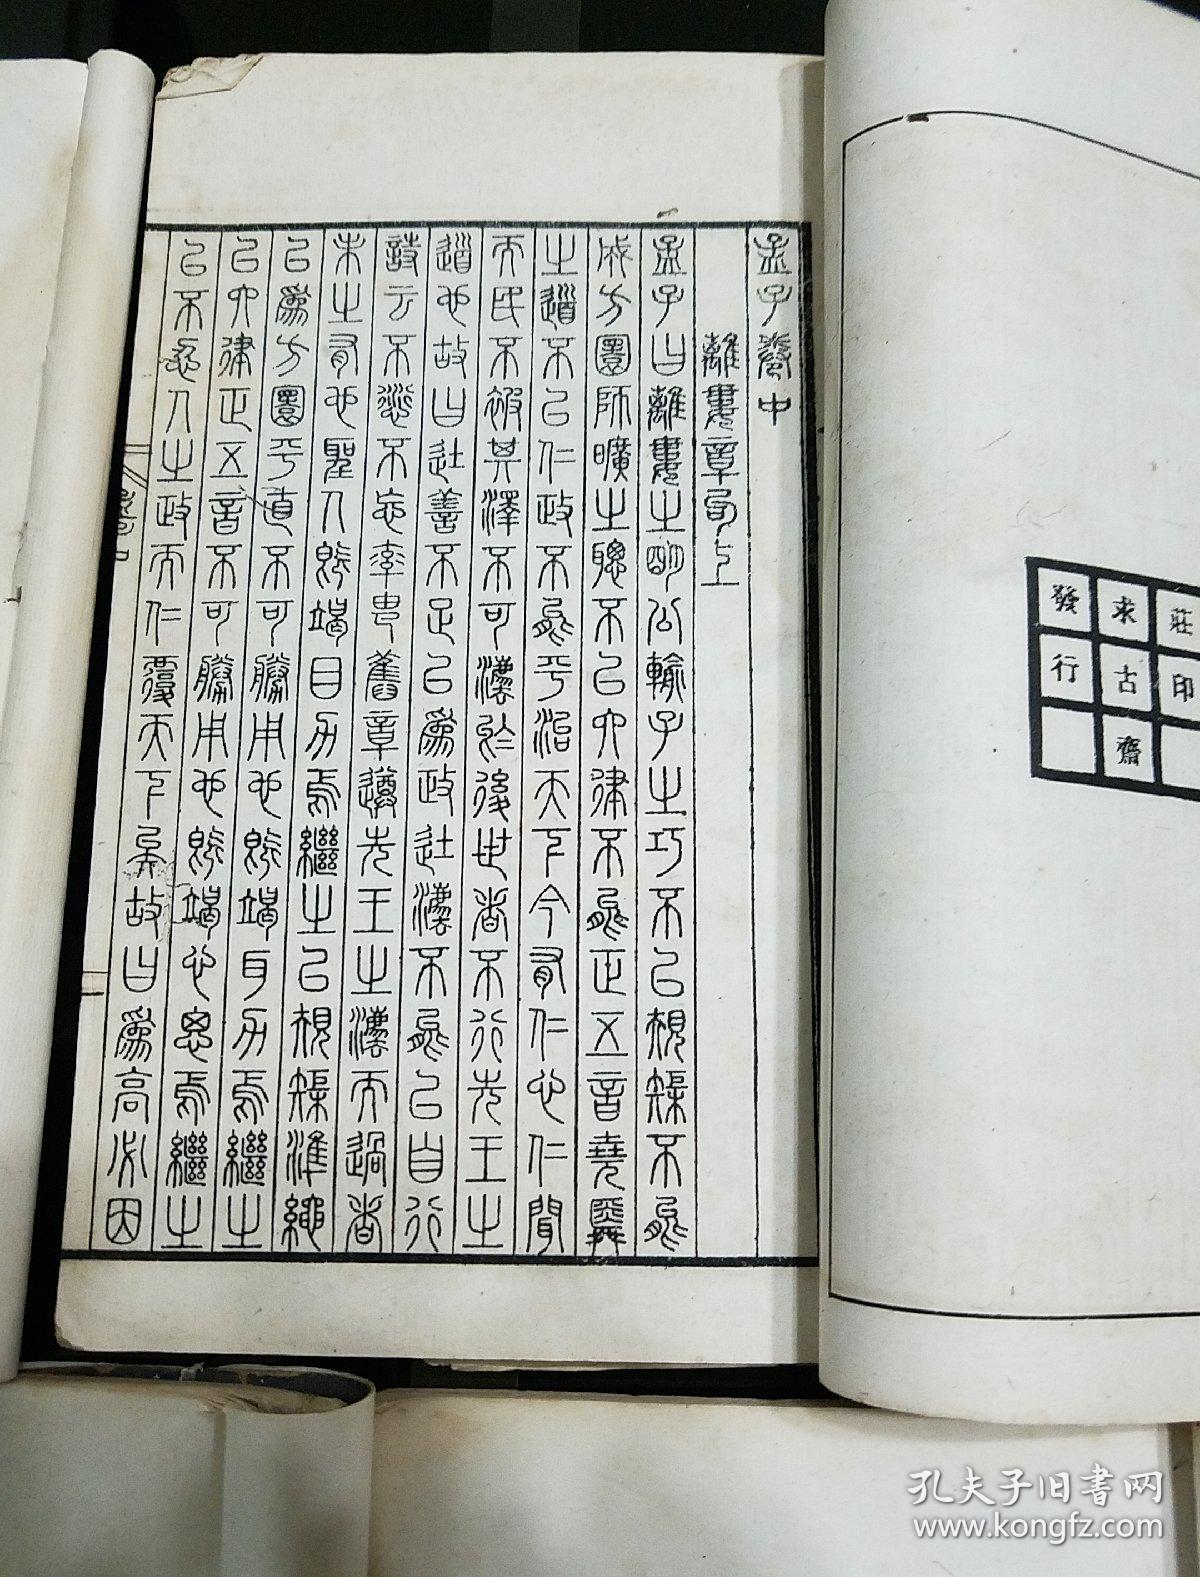 莊印
求古齋
發行
孟子卷中
離婁章句上
孟子曰離婁之明公輸子之巧不以規矩不能
成方圓師曠之聰不以六律不能正五音堯舜
之道不以仁政不能平治天下今有仁心仁聞
而民不被其澤不可法於後世者不行先王之
道也故曰徒善不足以爲政徒法不能以自行
詩云不愆不忘率由舊章遵先王之法而過者
未之有也聖人既竭目力焉繼之以規矩準繩
以爲方圓平直不可勝用也既竭耳力焉繼之
以六律正五音不可勝用也既竭心思焉繼之
以不忍人之政而仁覆天下矣故曰爲高必因
孔夫子旧书网
www.kongfz.com